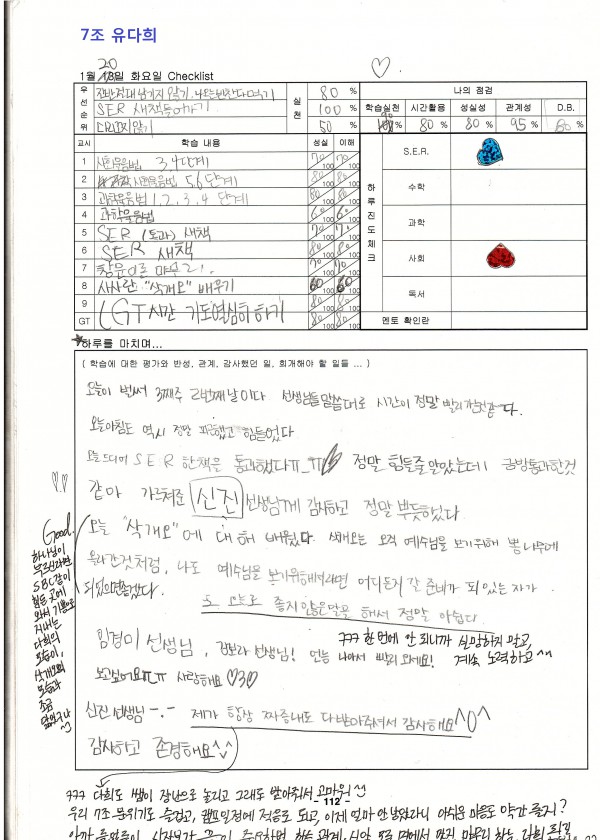 7조 유다희
20
1월 19일 화요일 Checklist
우선순위
80 %
SER 새책들어가기
100 %
50 %
실천
나의 점검
학습실천 시간활용 성실성 관계성 D.B.
90 % 80 % 80 % 95 % 80 %
교시 학습 내용 성실 이해
1 사회유음법 3,4단계 70/100 70/100
2 사회유음법 5,6 단계 80/100 80/100
3 과학유음법 1, 2, 3, 4 단계 80/100 80/100
4 과학유음법 60/100 60/100
5 SER (통과) 새책 70/100 70/100
6 SER 새책 80/100 80/100
7 70/100 70/100
8 사사란 "삭개오" 배우기 60/100 60/100
9 80/100 80/100
GT GT시간 기도열심히 하기 80/100 80/100
하루진도체크
S.E.R.
수학
과학
사회
독서
멘토 확인란
하루를 마치며...
( 학습에 대한 평가와 반성, 관계, 감사했던 일, 회개해야 할 일들 ... )
오늘이 벌써 3째주 2번째날이다 선생님들말씀대로 시간이 정말 빨리 가는것같다.
오늘아침도 역시 정말 피곤했고 힘들었다
오늘 드디어 SER 한책은 통과했다ㅠ_ㅠ 정말 힘들줄알았는데 금방통과한것
같아 가르쳐준 신진 선생님께 감사하고 정말 뿌듯했다.
오늘 "삭개오"에 대해 배웠다. 삭개오는 오직 예수님을 보기위해 뽕나무에
올라간것처럼, 나도 예수님을 보기위해서라면 어디든지 갈 준비가 되있는 자가
되었으면좋겠다.
좋지않은말을 해서 정말 아쉽다.
임경미 선생님, 선생님! 얼른 나아서 빨리 오세요!
보고싶어요ㅠㅠ 사랑해요 ♡3♡
ㅋㅋㅋ 한번에 안 되니까 실망하지 말고,
계속 노력하고 ^^
신진 선생님 -.- 제가 항상 짜증내도 다받아주셔서 감사해요^0^
감사하고 존경해요^^
Good.
하나님이
부르신다면
SBC같이
힘든 곳에
와서 기쁨으로
지내는
다희의
모습이,
삭개오의
모습과
조금
닮았구나
ㅋㅋㅋ 다희도 쌤이 장난으로 놀리고 그래도 받아줘서 고마워
- 112 -
우리 7조 분위기도 즐겁고, 캠프일정에 적응도 되고, 이제 얼마 안 남았다니 아쉬운 마음도 약간 들지?